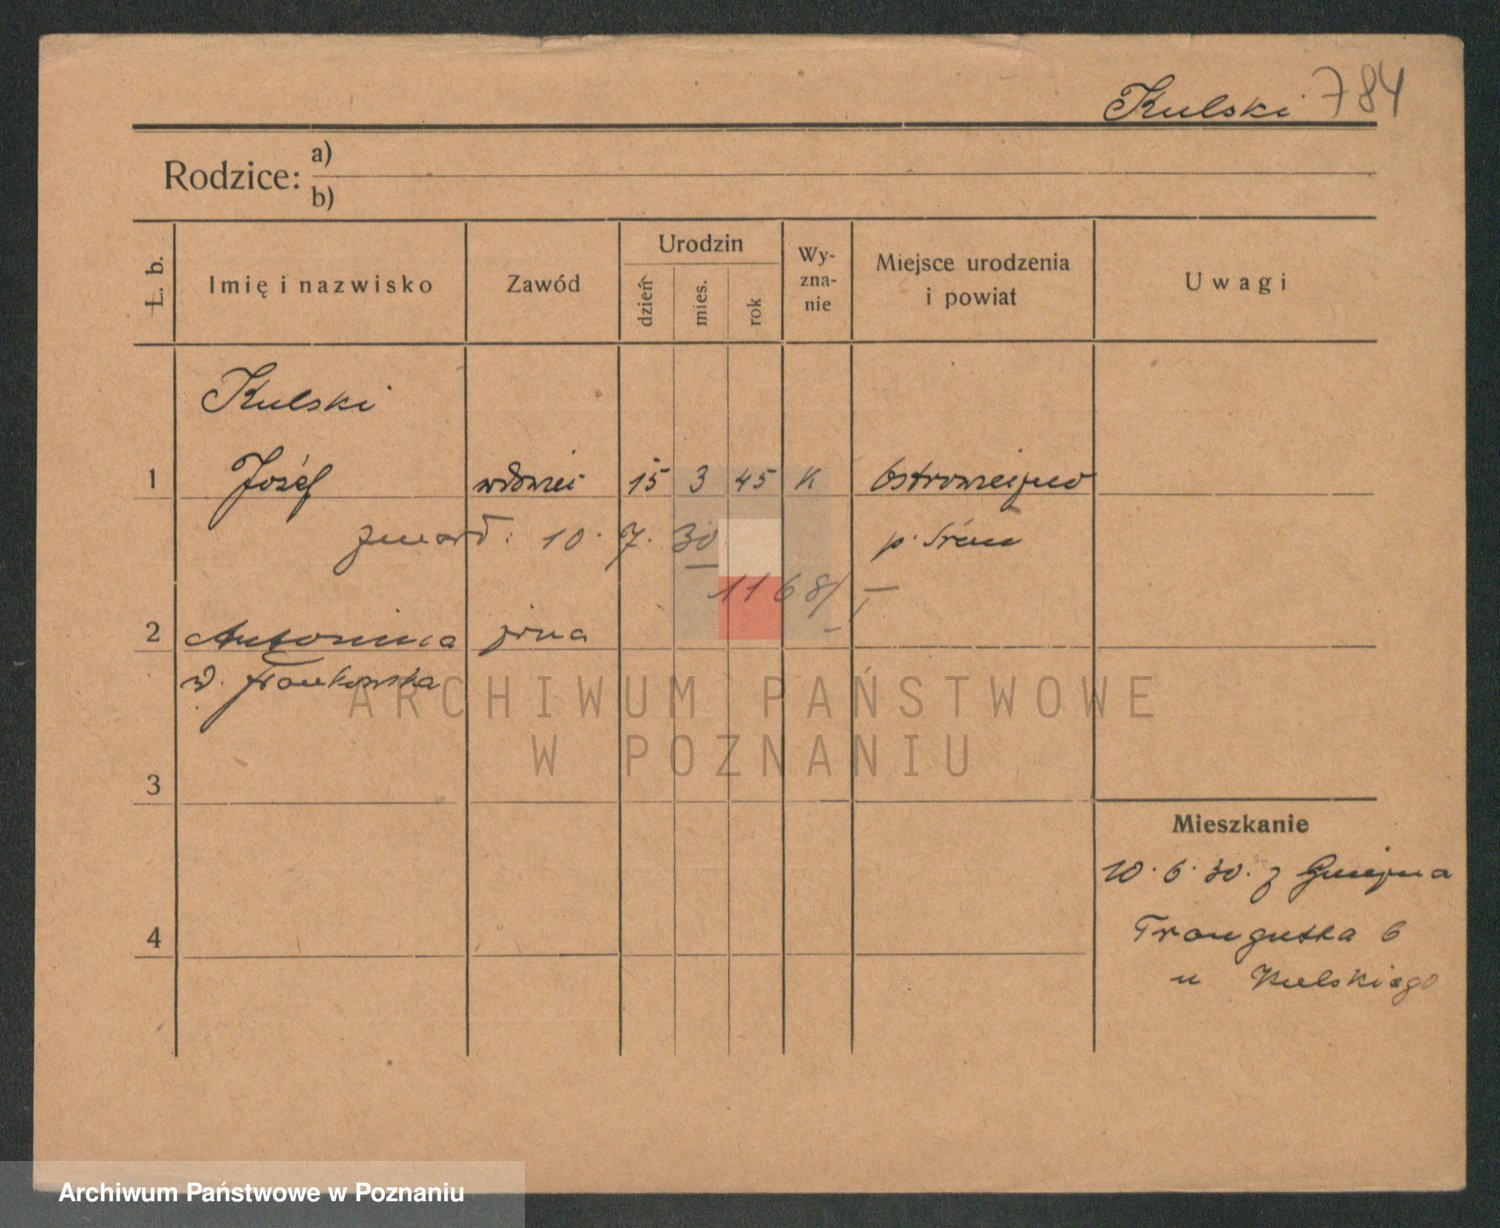 Kulski 784
Rodzice: a)
b)
L. b.
Imię i nazwisko
Zawód
Urodzin
dzień
mies.
rok
Wy-
zna-
nie
Miejsce urodzenia
i powiat
Uwagi
Kulski
1 Józef wdowiec 15 3 45 K
zmarł: 10. 7. 30 p. Śrem
1168/I
2 Antonina żona
Frankowska
ARCHIWUM PAŃSTWOWE
W POZNANIU
3
Mieszkanie
10. 6. 30. z Gniezna
4 Traugutta 6
u Kulskiego
Archiwum Państwowe w Poznaniu